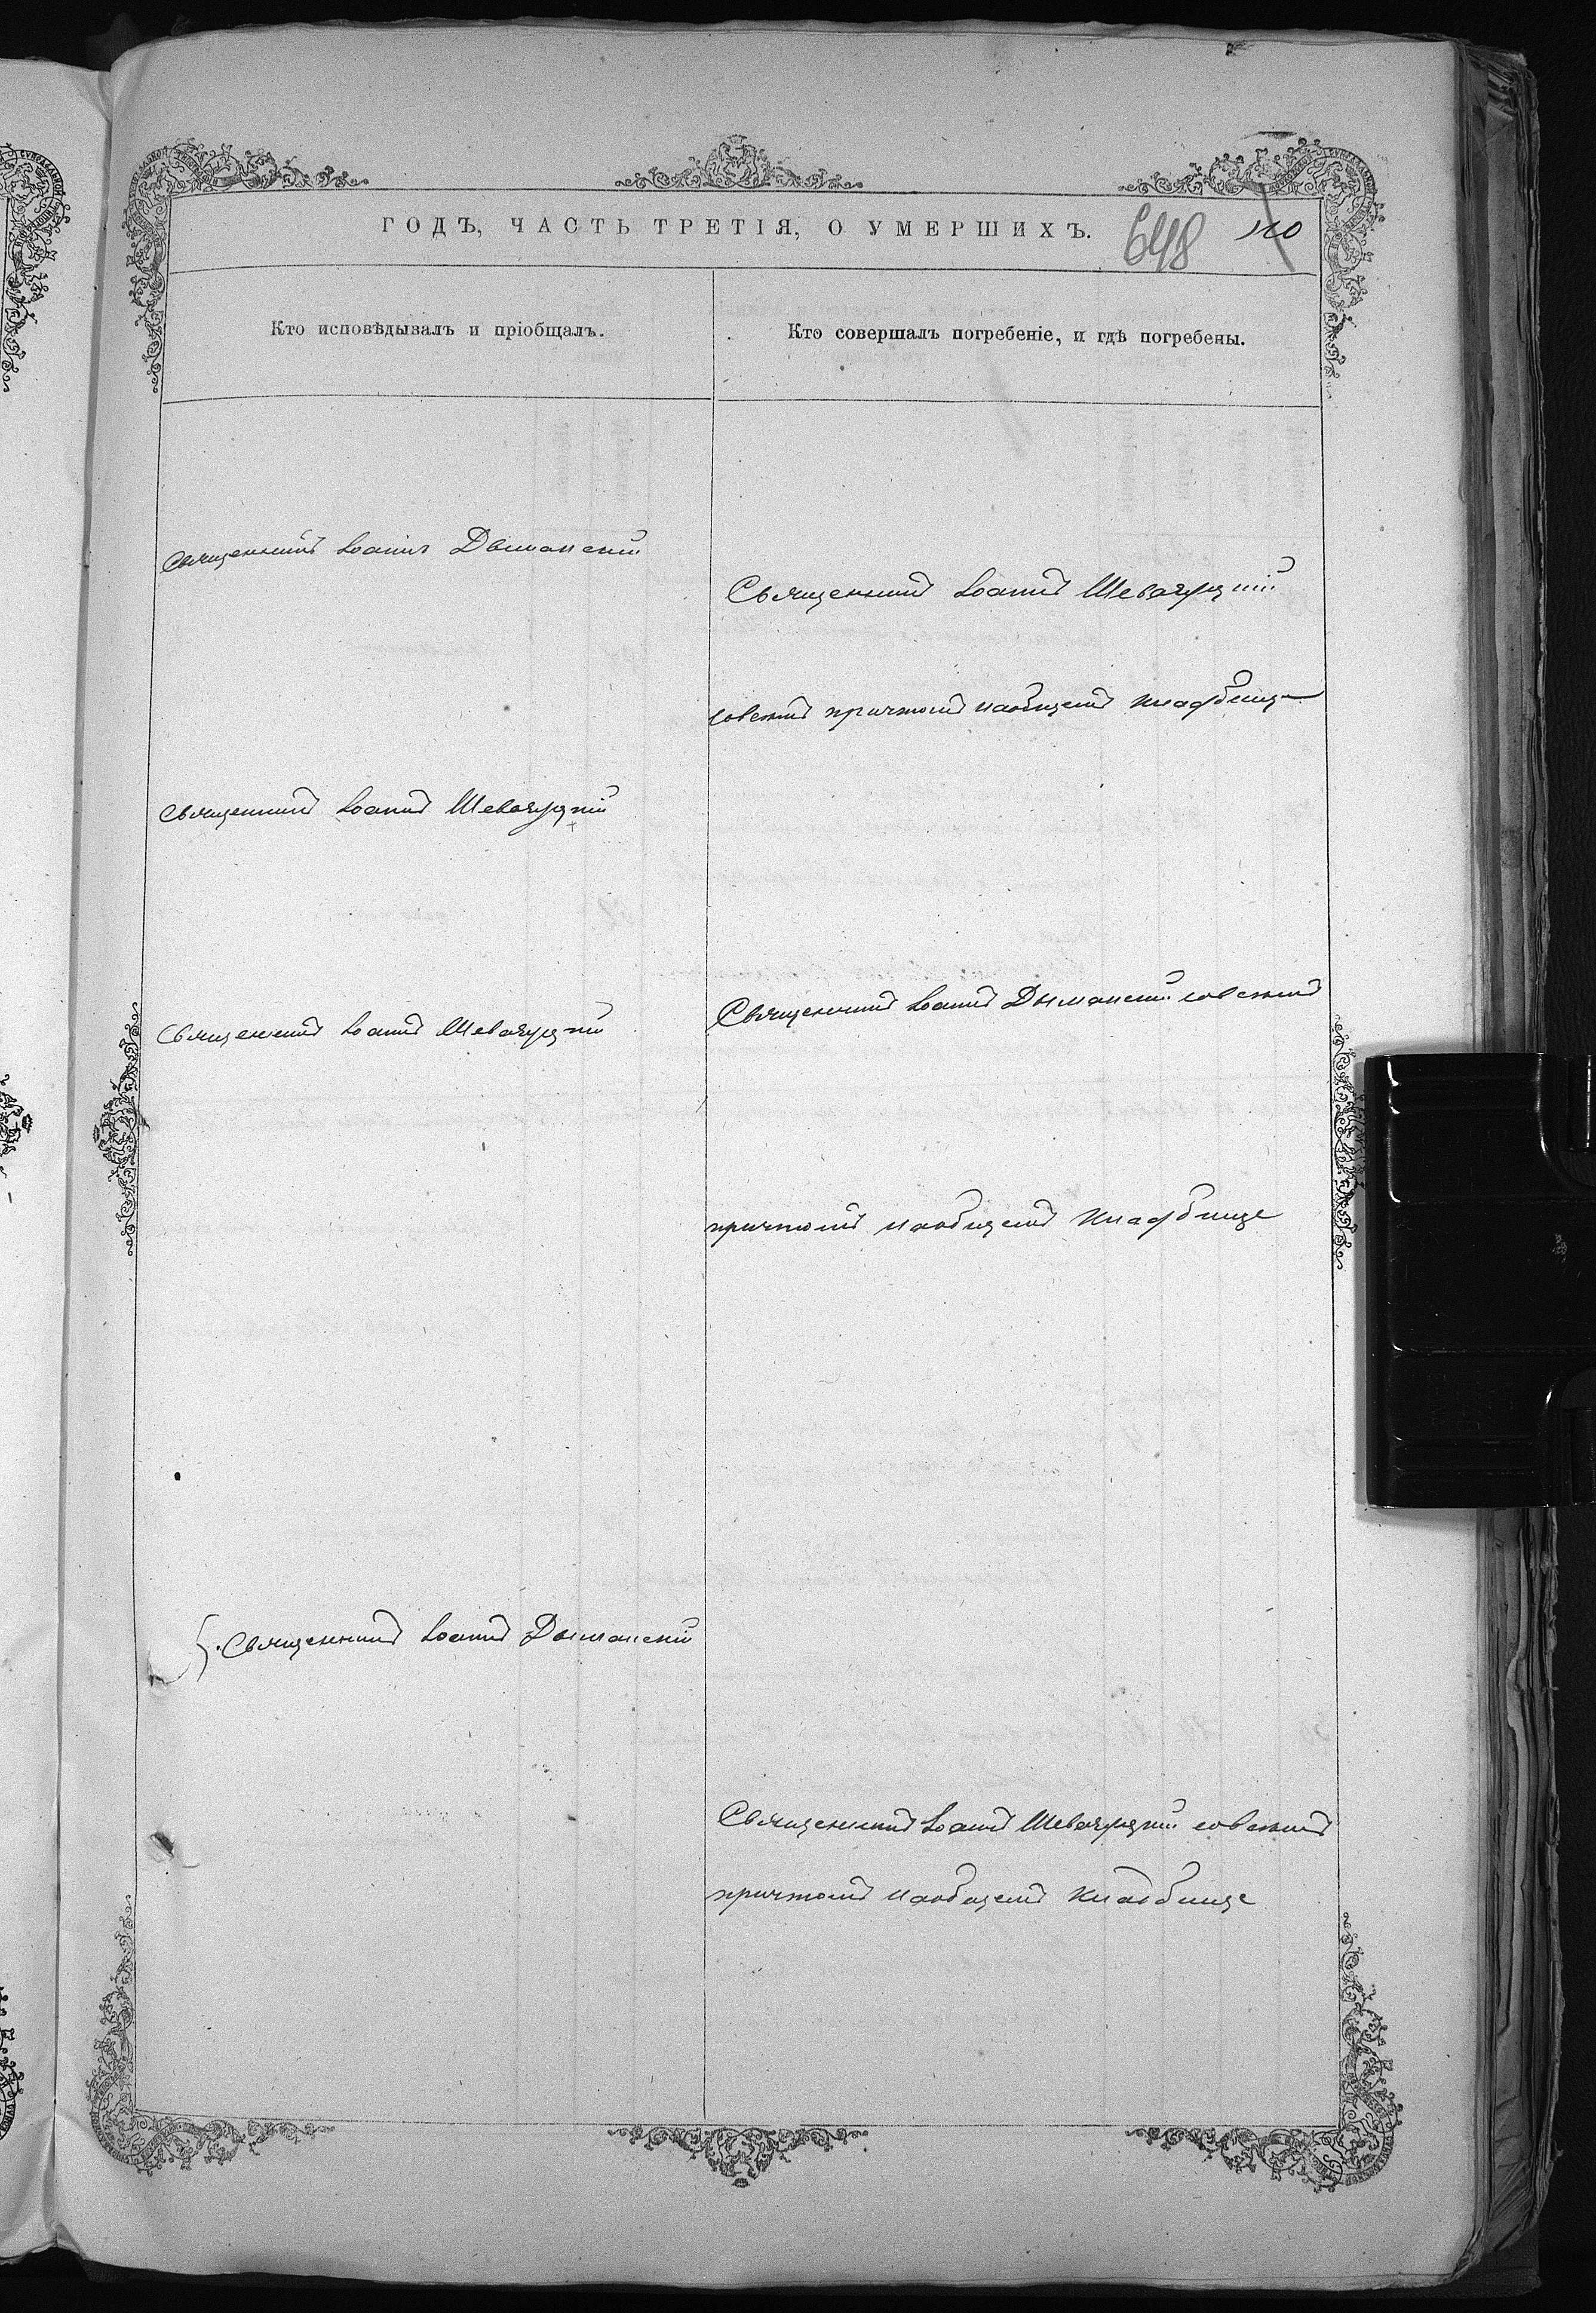 ГОДЪ, ЧАСТЬ ТРЕТІЯ, О УМЕРШИХЪ.
648 110
Кто исповѣдывалъ и пріобщалъ.
Кто совершалъ погребеніе, и гдѣ погребены.
Священникъ Іоаннъ Дыманскій
Священникъ Іоаннъ Шеваруцкій
совсемъ причтомъ наобщемъ кладбище
Священникъ Іоаннъ Шеваруцкій
Священникъ Іоаннъ Шеваруцкій
Священникъ Іоаннъ Дыманскій совсемъ
причтомъ наобщемъ кладбище
Священникъ Іоаннъ Дыманскій
Священникъ Іоаннъ Шеваруцкій совсемъ
причтомъ наобщемъ кладбище